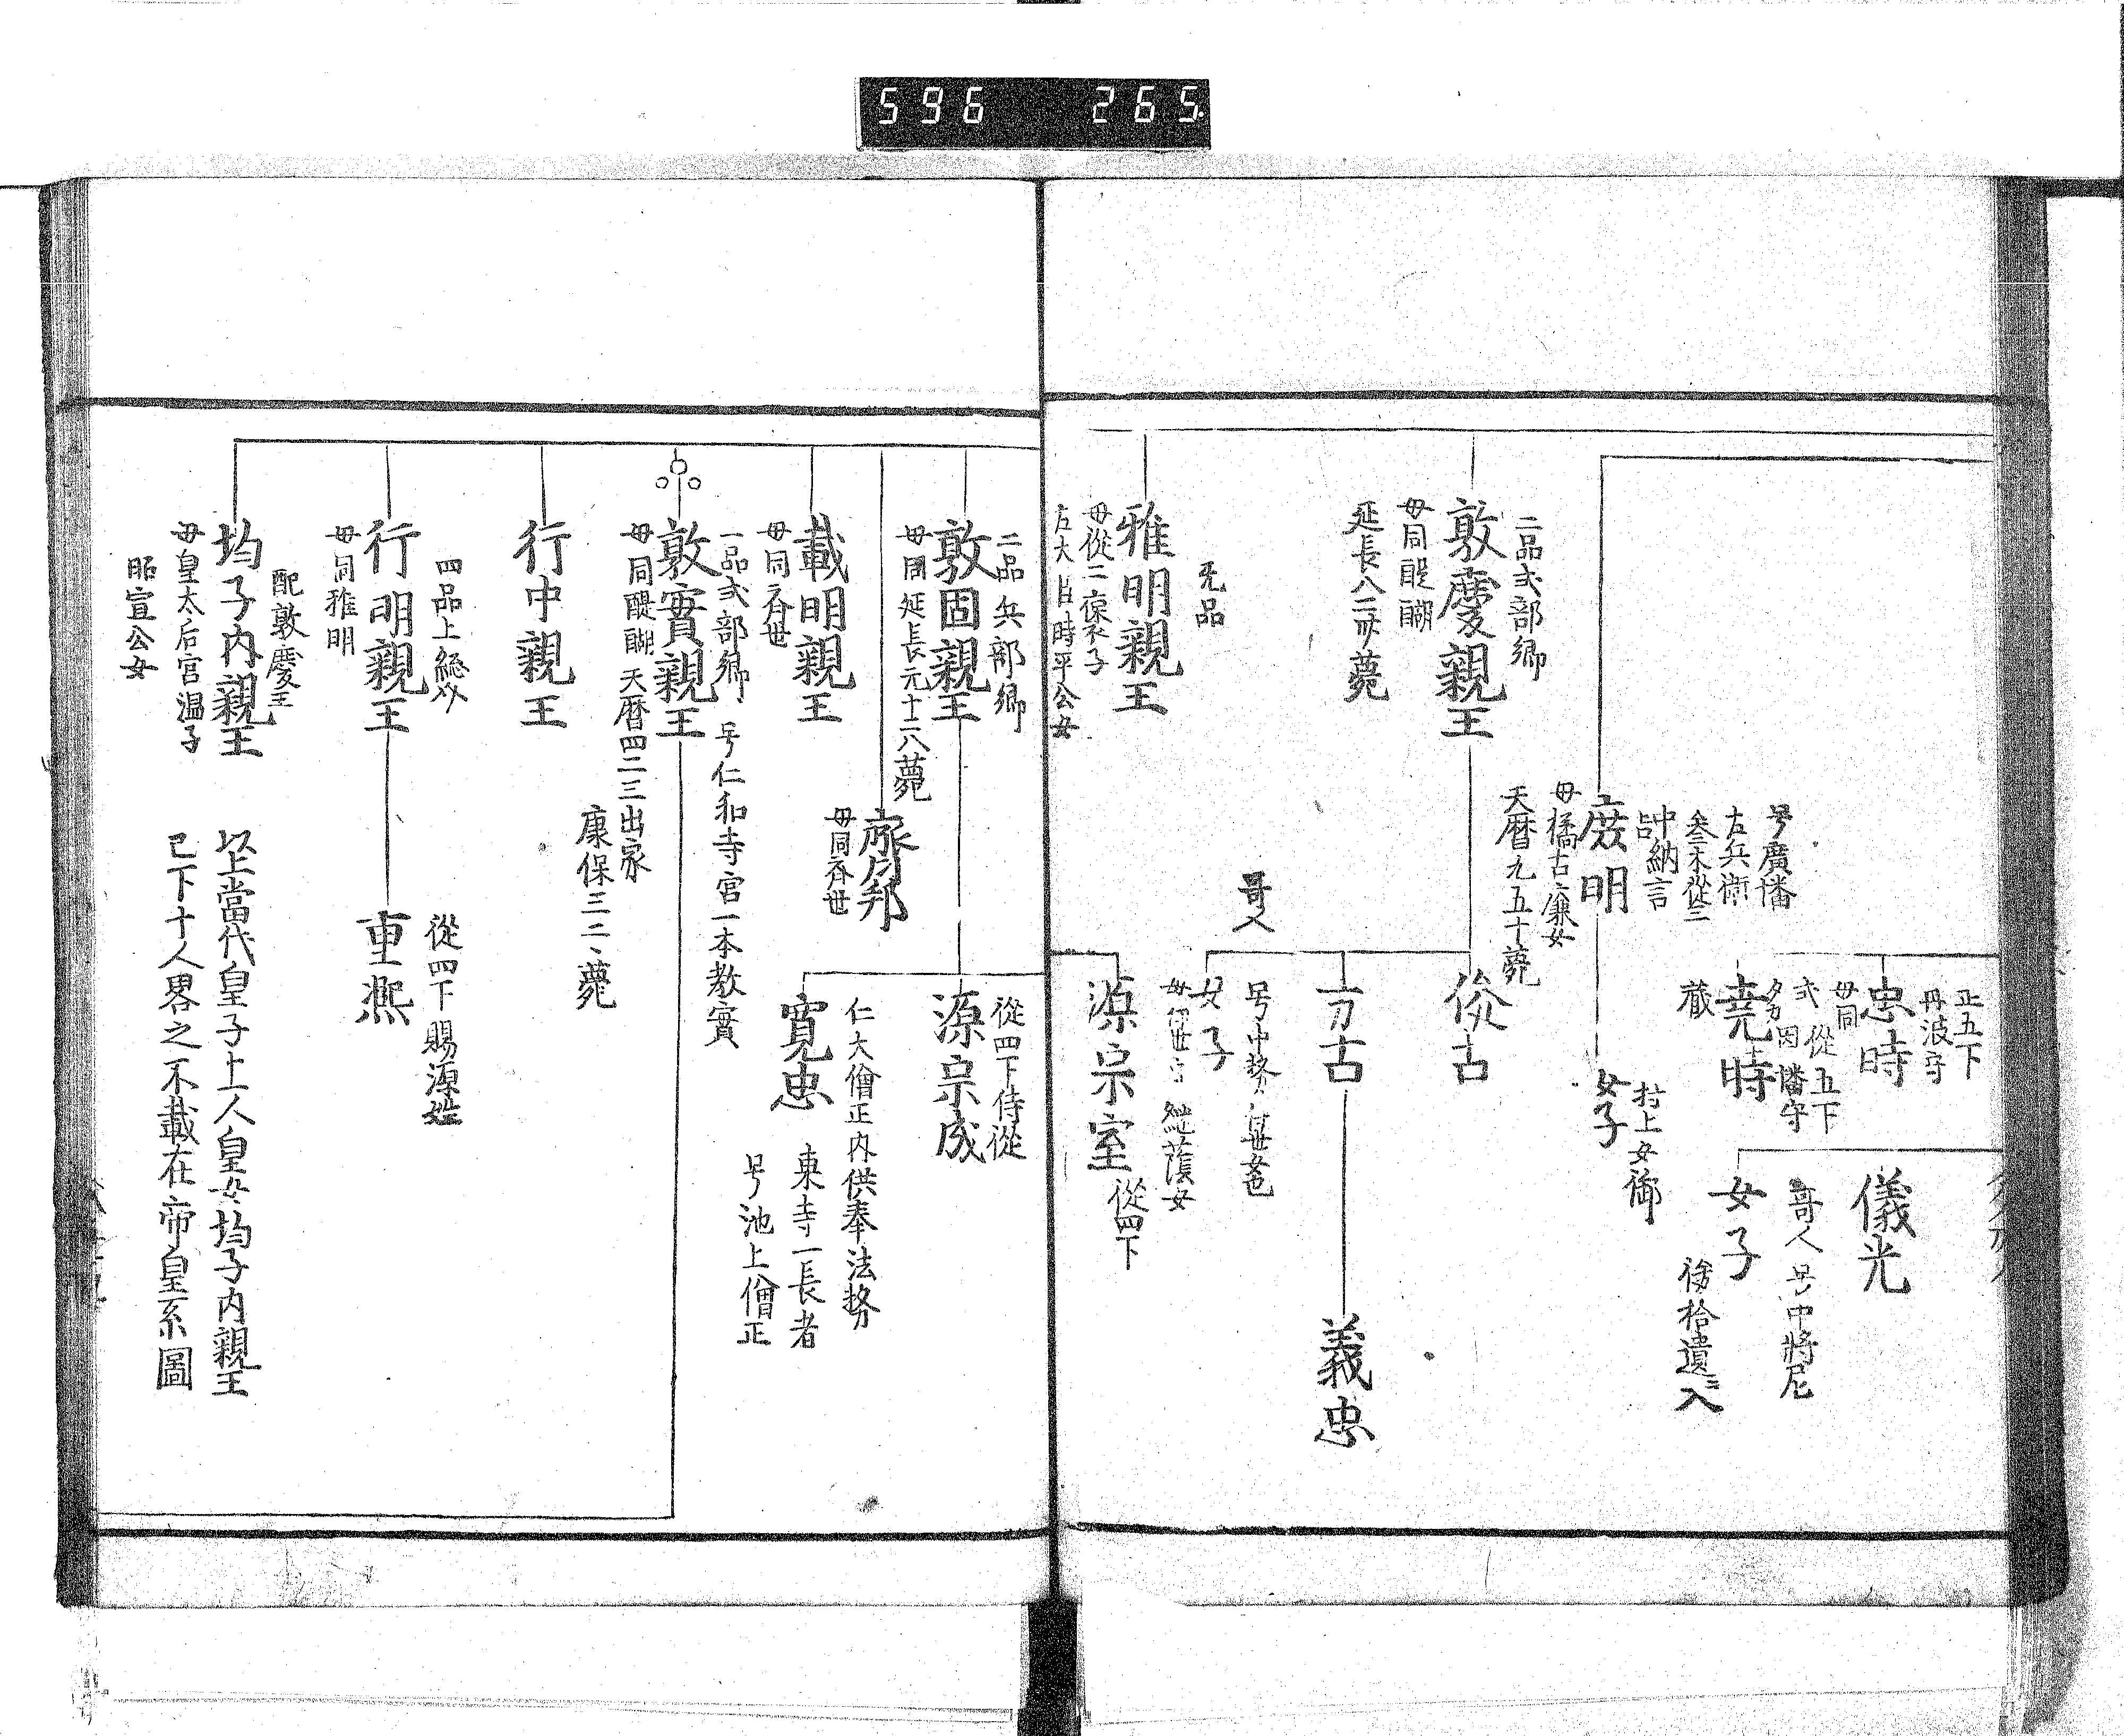 596 265.
正五下
丹波守
忠時
母同
式 從五下
因幡守
堯時
蔵
儀光
哥人 号中將尼
女子
後拾遺ニ入
号廣幡
右兵衛
叅木從三
中納言
庻明
母橘古廉女
天暦九五十薨
村上女御
女子
二品式部卿
敦慶親王
母同醍醐
延長八二廿薨
俊古
方古
義忠
哥人
号中務
女子
无品
雅明親王
母從二褒子
左大臣時平公女
源宗室
從四下
二品兵部卿
敦固親王
母同 延長元十二八薨
從四下侍從
源宗成
仁大僧正内供奉法務
寛忠
東寺一長者
号池上僧正
母同斉世
載明親王
母同斉世
一品式部卿 号仁和寺宮一本教實
敦實親王
母同醍醐 天暦四二三出家
康保三二、薨
行中親王
四品上総大
行明親王
母同雅明
從四下賜源姓
重熈
配敦慶王
均子内親王
母皇太后宮温子
昭宣公女
以上當代皇子十一人皇女均子内親王
已下十人畧之不載在帝皇系圖